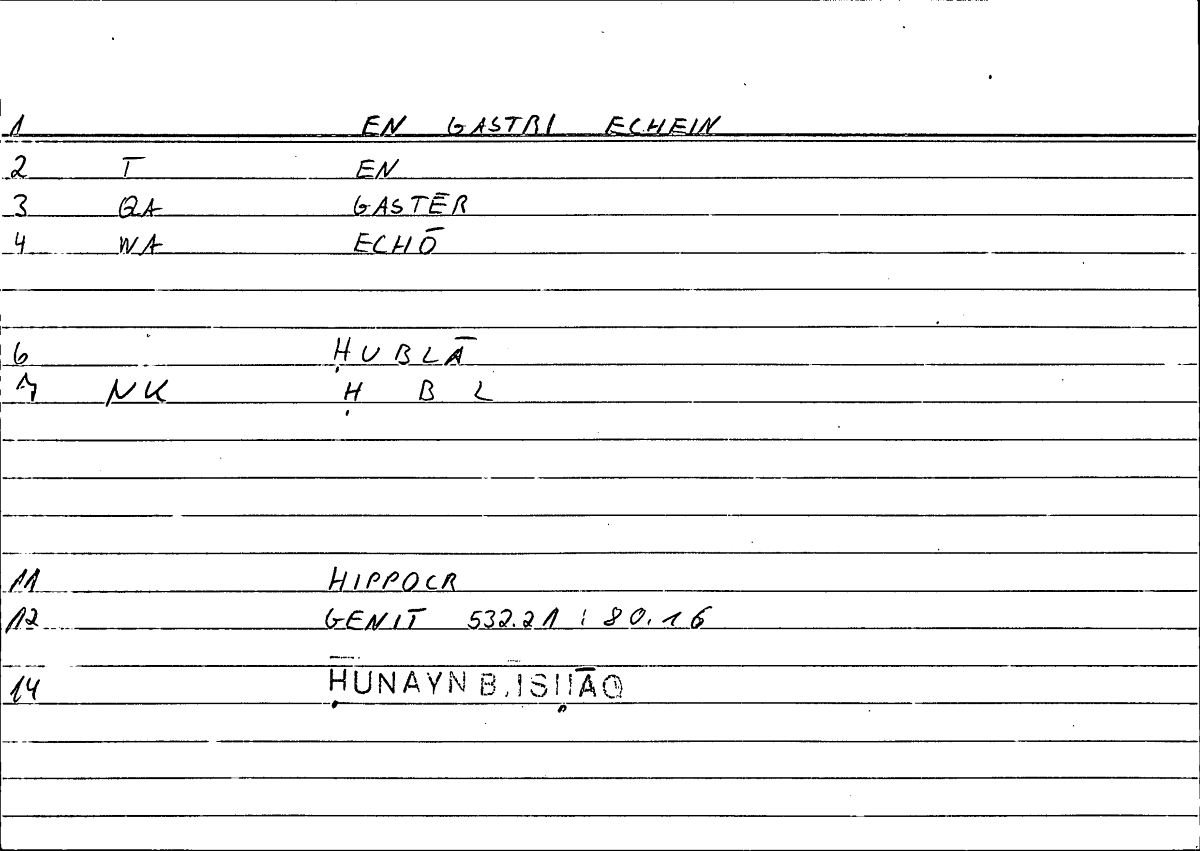 1 EN GASTRI ECHEIN
2 T EN
3 QA GASTĒR
4 WA ECHŌ
6 ḤUBLĀ
7 NK Ḥ B L
11 HIPPOCR
12 GENIT 532.21 : 80.16
14 ḤUNAYN B. ISḤĀQ